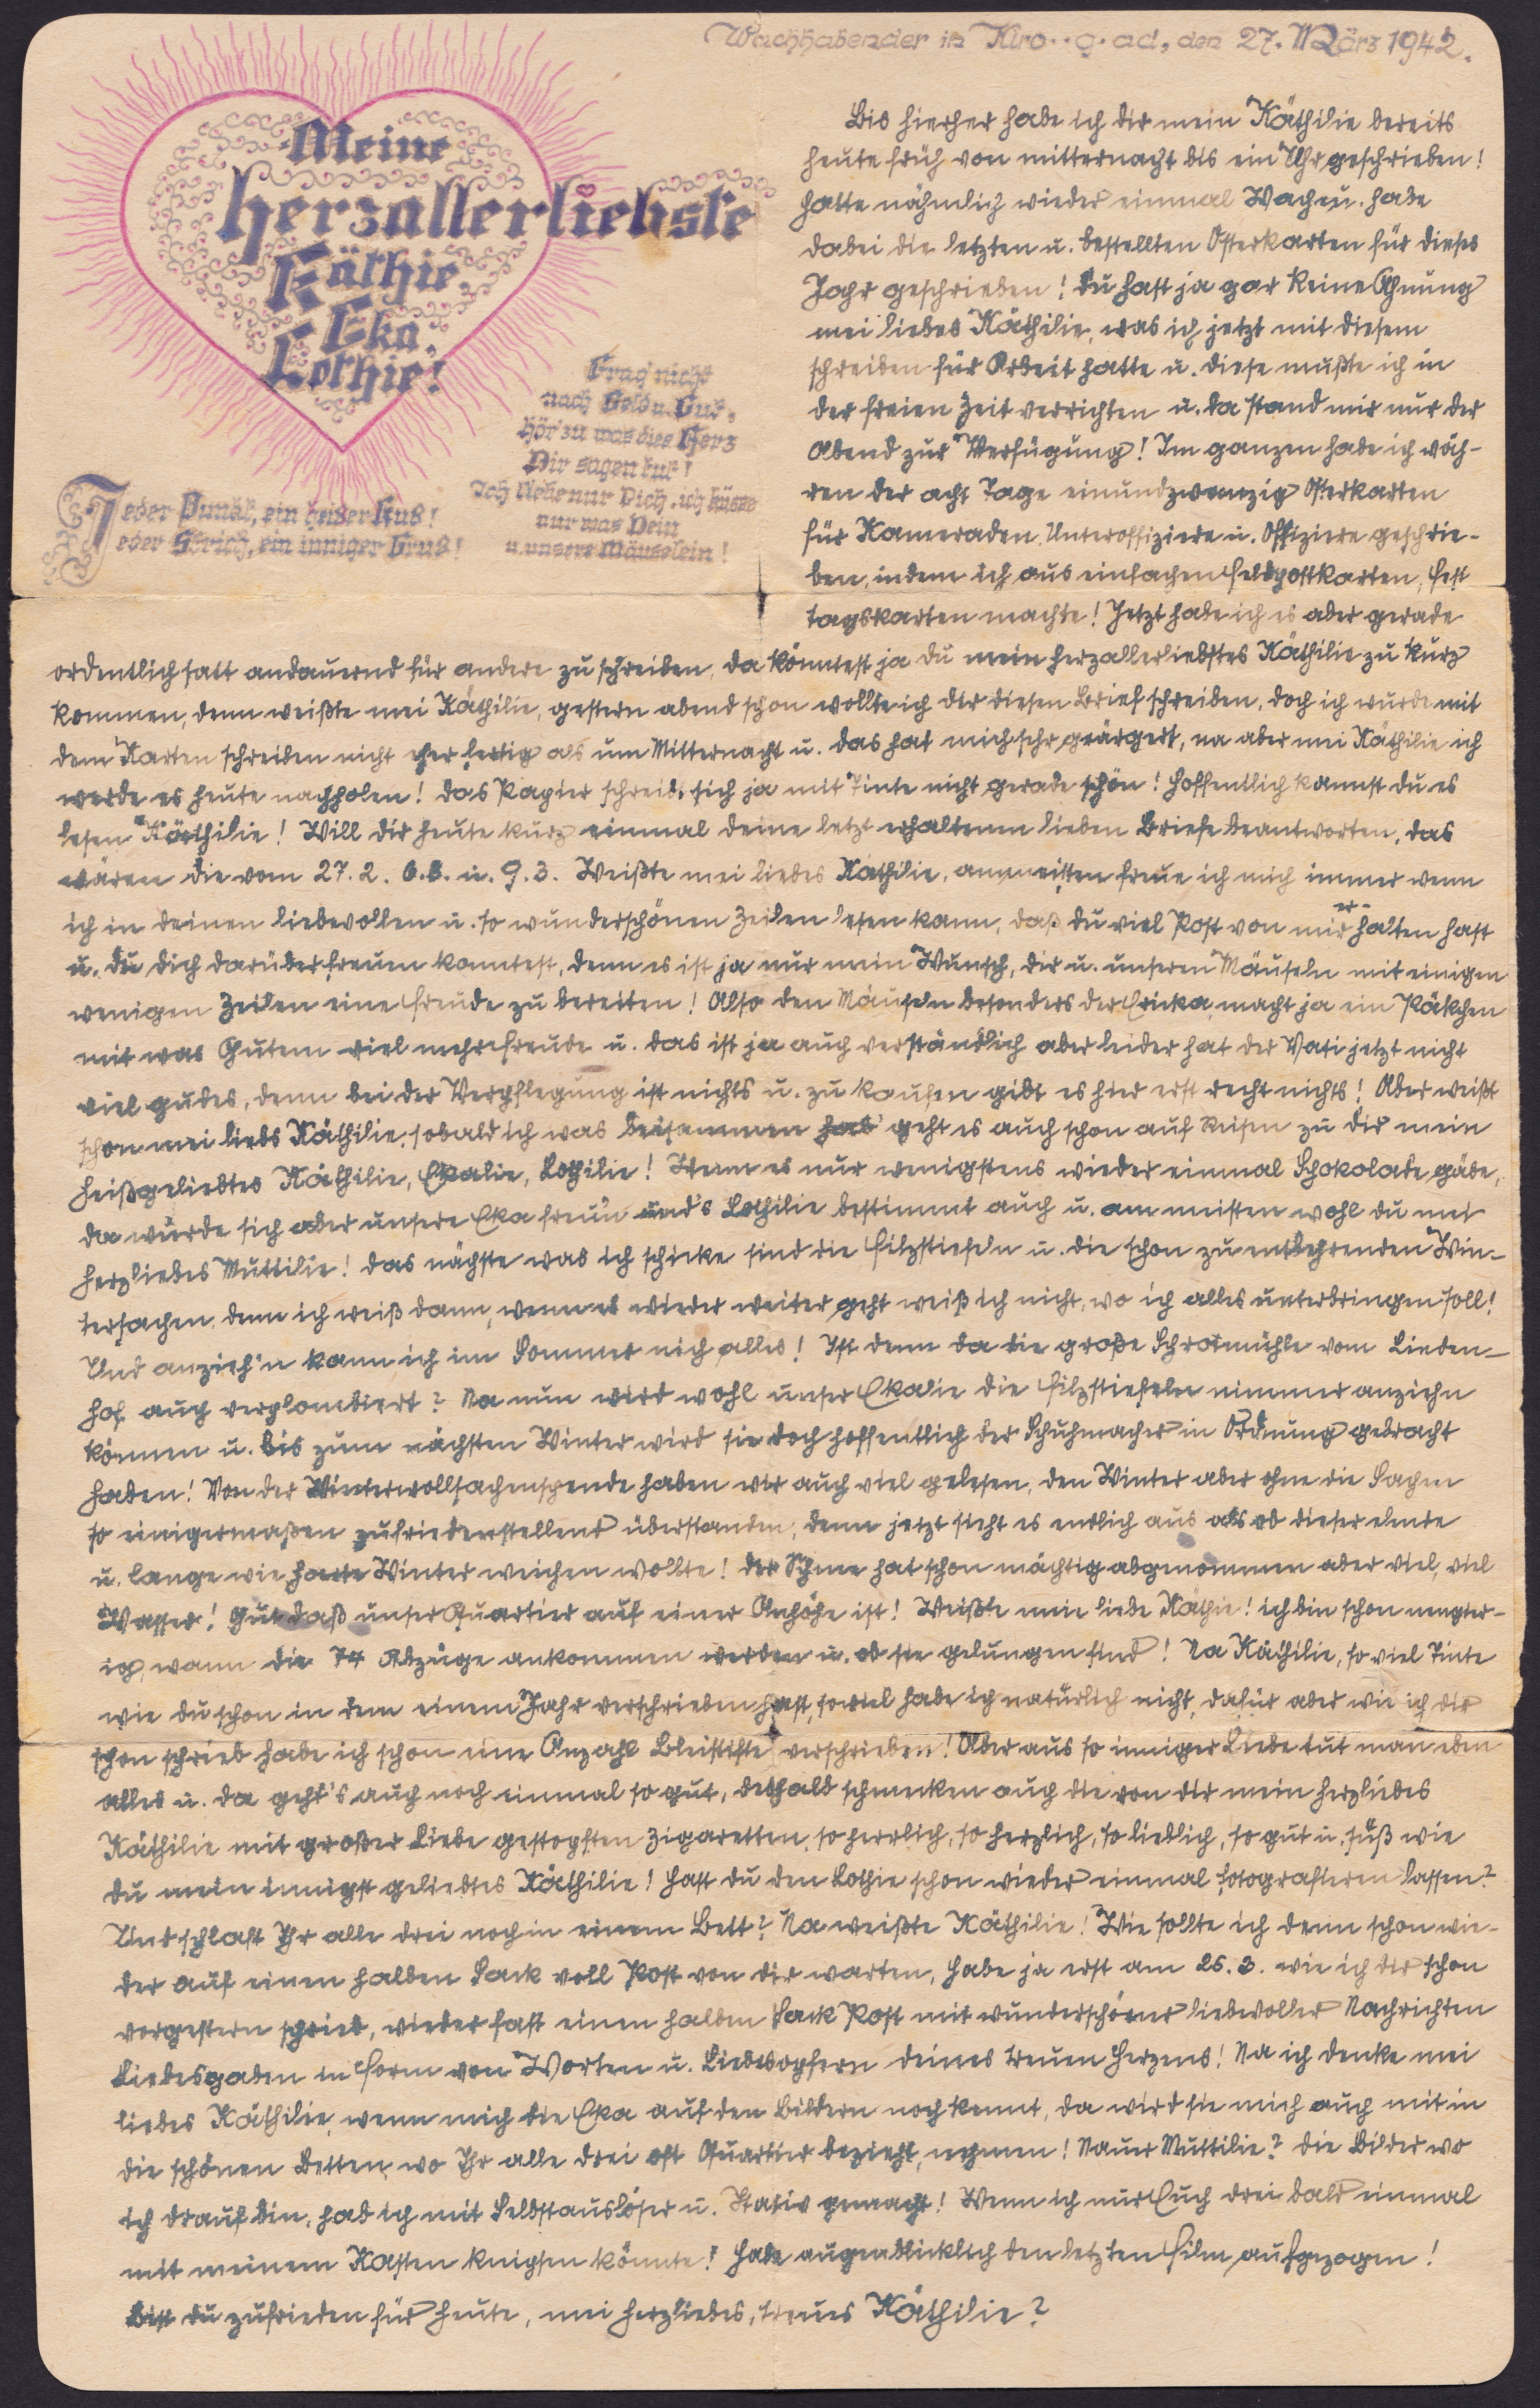 Wachhabender in Kiro..g.ad, den 27. März 1942.
Meine
herzallerliebste
Käthie,
Eka,
Lothie!
Frag nicht
nach Geld u. Gut,
hör zu was dies Herz
Dir sagen tut!
Ich liebe nur Dich, ich küsse
nur was Dein
u. unsere Mäuselein!
Jeder Punkt, ein heißer Kuß!
Jeder Strich, ein inniger Gruß!
Bis hierher habe ich dir mein Käthilie bereits
heute früh von mitternacht bis ein Uhr geschrieben!
hatte nähmlich wieder einmal Wach u. habe
dabei die letzten u. bestellten Osterkarten für dieses
Jahr geschrieben! Du hast ja gar keine Ahnung
mei liebes Käthilie, was ich jetzt mit diesem
schreiben für Arbeit hatte u. diese mußte ich in
der freien Zeit verrichten u. da stand mir nur der
Abend zur Verfügung! Im ganzen habe ich wäh-
ren der acht Tage einundzwanzig Osterkarten
für Kameraden, Unteroffiziere u. Offiziere geschrie-
ben, indem ich aus einfachen Feldpostkarten, Fest
tagskarten machte! Jetzt habe ich es aber gerade
ordentlich satt andauernd für andere zu schreiben, da könntest ja du mein herzallerliebstes Käthilie zu kurz
kommen, denn weißte mei Käthilie, gestern abend schon wollte ich dir diesen Brief schreiben, doch ich wurde mit
dem Karten schreiben nicht eher fertig als um Mitternacht u. das hat mich sehr geärgert, na aber mei Käthilie ich
werde es heute nachholen! Das Papier schreibt sich ja mit Tinte nicht gerade schön! Hoffentlich kannst du es
lesen Käthilie! Will dir heute kurz einmal deine letzt erhaltenen lieben Briefe beantworten, das
wären die vom 27. 2. 6. 3. u. 9. 3. Weißte mei liebes Käthilie, am meisten freue ich mich immer wenn
ich in deinen liebevollen u. so wunderschönen Zeilen lesen kann, daß du viel Post von mir erhalten hast
u. du dich darüber freuen konntest, denn es ist ja nur mein Wunsch, dir u. unseren Mäuseln mit einigen
wenigen Zeilen eine Freude zu bereiten! Also den Mäuseln besonders der Ericka, macht ja ein Päkchen
mit was Gutem viel mehr Freude u. das ist ja auch verständlich aber leider hat der Vati jetzt nicht
viel gudes, denn bei der Verpflegung ist nichts u. zu kaufen gibt es hier erst recht nichts! Aber weißt
schon mei liebs Käthilie, sobald ich was beisammen hab' geht es auch schon auf Reisen zu dir mein
heißgeliebtes Käthilie, Ekalie, Lothilie! Wenn es nur wenigstens wieder einmal Schokolade gäbe,
da würde sich aber unsere Eka freun und's Lothilie bestimmt auch u. am meisten wohl du mei
herzliebes Muttilie! Das nächste was ich schicke sind die Filzstiefeln u. die schon zu entbehrenden Win-
tersachen, denn ich weiß dann, wenn es wieder weiter geht weiß ich nicht, wo ich alles unterbringen soll!
Und anzieh'n kann ich im Sommer nich alles! Ist denn da die große Schrotmühle vom Linden-
hof auch verplombiert? Na nun wird wohl unser Ekalie die Filzstiefeln nimmer anziehn
können u. bis zum nächsten Winter wird sie doch hoffentlich der Schuhmacher in Ordnung gebracht
haben! Von der Winterwollsachenspende haben wir auch viel gelesen, den Winter aber ohne die Sachen
so einigermaßen zufriedenstellend überstanden, denn jetzt sieht es endlich aus als ob dieser elende
u. lange wie harte Winter weichen wollte! Der Schnee hat schon mächtig abgenommen aber viel, viel
Wasser! Gut daß unser Quartier auf einer Anhöhe ist! Weißte meine liebe Käthie! ich bin schon neugier-
ig, wann die 74 Abzüge ankommen werden u. ob sie gelungen sind! Na Käthilie, so viel Tinte
wie du schon in dem einem Jahr verschrieben hast, soviel habe ich natürlich nicht, dafür aber wie ich dir
schon schrieb habe ich schon eine Anzahl Bleistifte verschrieben! Aber aus so inniger Liebe tut man eben
alles u. da geht's auch noch einmal so gut, deshalb schmecken auch die von dir mein herzliebes
Käthilie mit großer Liebe gestopften Zigaretten, so herrlich, so herzlich, so lieblich, so gut u. süß wie
du mein innigst geliebtes Käthilie! Hast du den Lothie schon wieder einmal fotografieren lassen?
Und schlaft Ihr alle drei noch in einem Bett? Na weißte Käthilie! Wie sollte ich denn schon wie-
der auf einen halben Sack voll Post von dir warten, habe ja erst am 25. 3. wie ich dir schon
vorgestern schrieb, wieder fast einen halben Sack Post mit wunderschöner liebevoller Nachrichten
Liebesgaben in Form von Worten u. Liebesopfern deines treuen Herzens! Na ich denke mei
liebes Käthilie, wenn mich die Eka auf den Bildern noch kennt, da wird sie mich auch mit in
die schönen Betten, wo Ihr alle drei oft Quartier bezieht, nehmen! Nauer Muttilie? Die Bilder wo
ich drauf bin, hab ich mit Selbstauslöser u. Stativ gemacht! Wenn ich nur Euch drei bald einmal
mit meinem Kasten knipsen könnte! Habe augenblicklich den letzten Film aufgezogen!
Bist du zufrieden für heute, mei herzliebes, treues Käthilie?